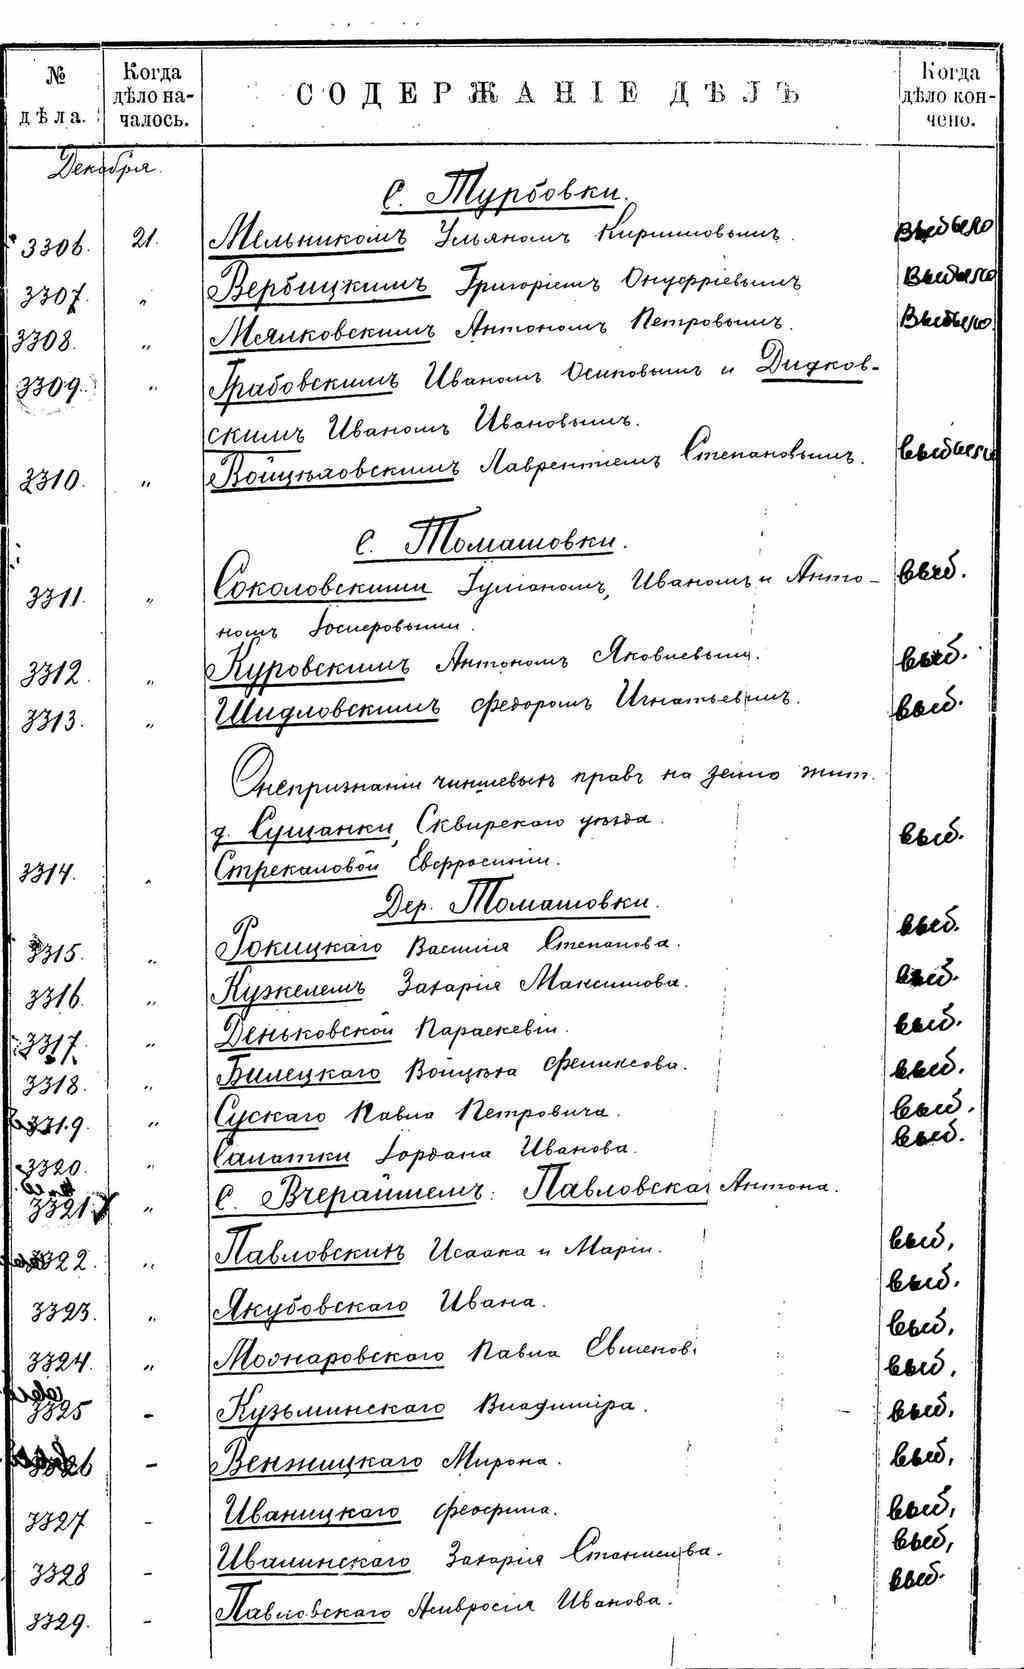 № дѣла. Когда дѣло началось. СОДЕРЖАНІЕ ДѢЛЪ Когда дѣло кончено.
Декабря.
С. Турбовки.
3306. 21. Мельникомъ Ульяномъ Кирилловымъ. Выбыло
3307. " Вербицкимъ Григоріемъ Онуфріевымъ Выбыло
3308. " Мялковскимъ Антономъ Петровымъ. Выбыло.
3309. " Грабовскимъ Иваномъ Осиповымъ и Дидков-
скимъ Иваномъ Ивановымъ.
3310. " Войцѣховскимъ Лаврентіемъ Степановымъ. выбыло
С. Томашовки.
3311. " Соколовскими Іуліаномъ, Иваномъ и Анто- выб.
номъ Іосифовыми.
3312. " Куровскимъ Антономъ Яковлевымъ. выб.
3313. " Шидловскимъ Федоромъ Игнатьевымъ. выб.
О непризнаніи чиншевыхъ правъ на землю жит.
д. Сущанки, Сквирскаго уѣзда.
3314. " Стрекаловой Евфросиніи. выб.
Дер. Томашовки.
3315. " Рокицкаго Василія Степанова. выб.
3316. " Кужелемъ Захарія Максимова. выб.
3317. " Деньковской Параскевіи. выб.
3318. " Билецкаго Войцѣха Феликсова. выб.
3319. " Сускаго Павла Петровича. выб.
3320. " Салатки Іордана Иванова. выб.
3321. " С. Вчерайшемъ: Павловская Антона.
3322. " Павловскихъ Исаака и Маріи. выб.
3323. " Якубовскаго Ивана. выб.
3324. " Мознаровскаго Павла выб.
3325 - Кузьминскаго Владиміра. выб.
3326 - Венжицкаго Мирона. выб.
3327 - Иваницкаго Феофила. выб.
3328 - Ивалинскаго Захарія Станислава. выб.
3329. - Павловскаго Амвросія Иванова. выб.